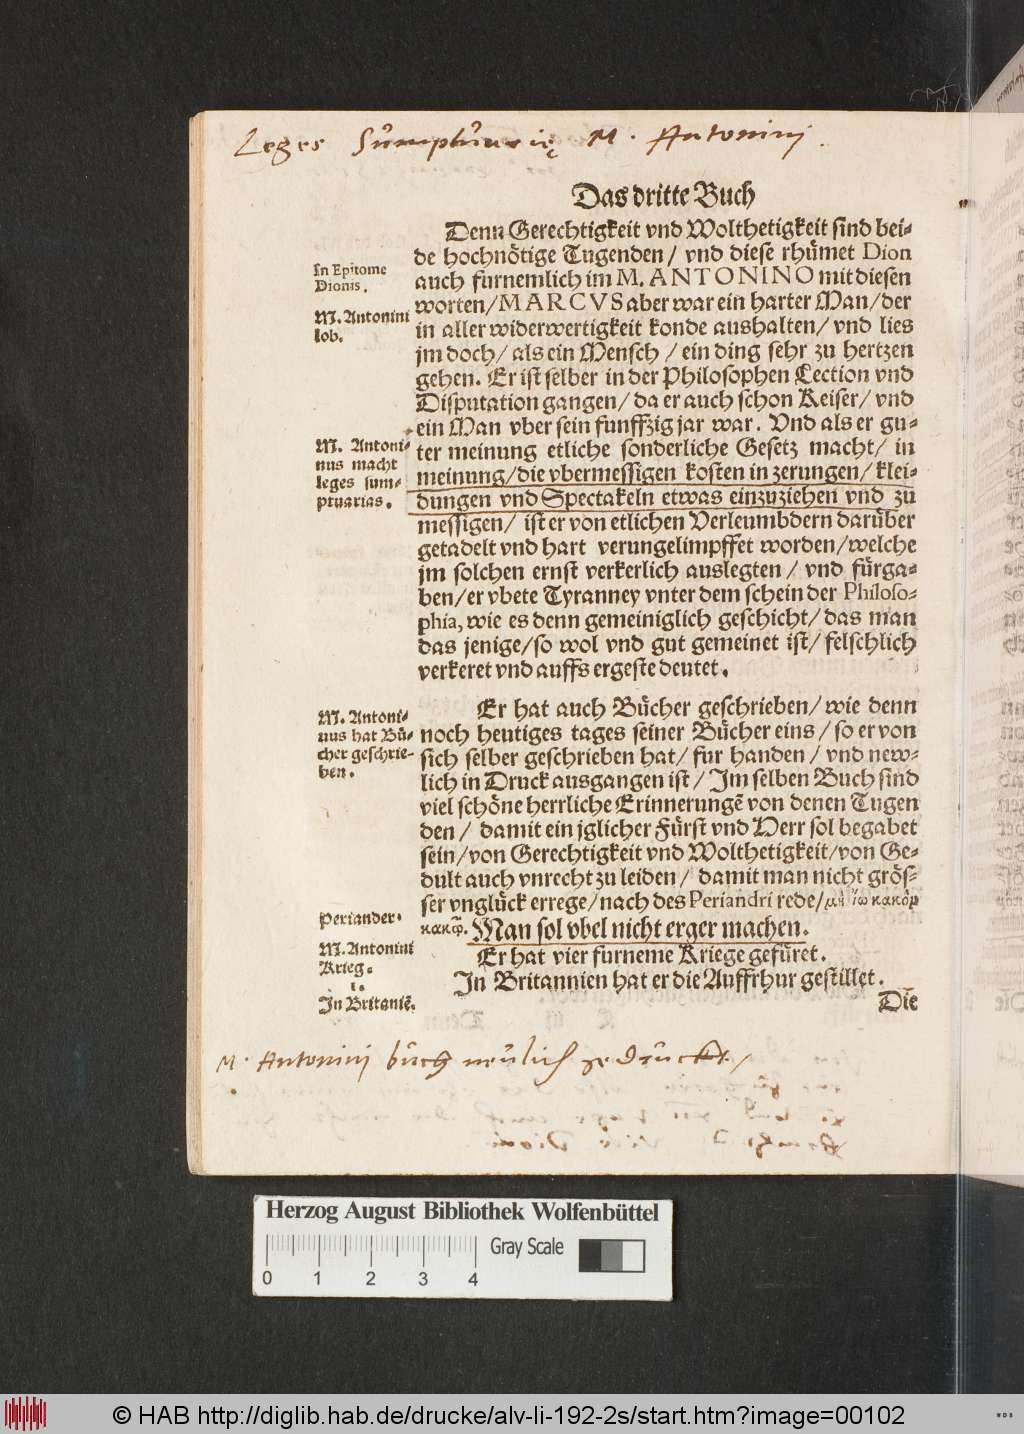 Leges Sumptuarię M. Antonini.
Das dritte Buch
Denn Gerechtigkeit vnd Wolthetigkeit sind bei-
de hochnötige Tugenden / vnd diese rhümet Dion
In Epitome
Dionis.
auch furnemlich im M. ANTONINO mit diesen
worten / MARCVS aber war ein harter Man / der
M. Antonini
lob.
in aller widerwertigkeit konde aushalten / vnd lies
jm doch / als ein Mensch / ein ding sehr zu hertzen
gehen. Er ist selber in der Philosophen Lection vnd
Disputation gangen / da er auch schon Keiser / vnd
ein Man vber sein funffzig jar war. Vnd als er gu-
M. Antoni-
nus macht
leges sum-
ptuarias.
ter meinung etliche sonderliche Gesetz macht / in
meinung / die vbermessigen kosten in zerungen / klei-
dungen vnd Spectakeln etwas einzuziehen vnd zu
messigen / ist er von etlichen Verleumbdern darüber
getadelt vnd hart verungelimpffet worden / welche
jm solchen ernst verkerlich auslegten / vnd fürga-
ben / er vbete Tyranney vnter dem schein der Philoso-
phia, wie es denn gemeiniglich geschicht / das man
das jenige / so wol vnd gut gemeinet ist / felschlich
verkeret vnd auffs ergeste deutet.
M. Antoni-
nus hat Bü-
cher geschrie-
ben.
Er hat auch Bücher geschrieben / wie denn
noch heutiges tages seiner Bücher eins / so er von
sich selber geschrieben hat / fur handen / vnd new-
lich in Druck ausgangen ist / Im selben Buch sind
viel schöne herrliche Erinnerungẽ von denen Tugen
den / damit ein jglicher Fürst vnd Herr sol begabet
sein / von Gerechtigkeit vnd Wolthetigkeit / von Ge-
dult auch vnrecht zu leiden / damit man nicht grös-
ser vnglück errege / nach des Periandri rede / μὴ ἰῶ κακὸν
Periander.
κακῷ. Man sol vbel nicht erger machen.
M. Antonini
Krieg.
1.
In Britaniẽ.
Er hat vier furneme Kriege gefüret.
In Britannien hat er die Auffrhur gestillet.
Die
M. Antonini buch neulich gedruckt /
Herzog August Bibliothek Wolfenbüttel
Gray Scale
0 1 2 3 4
© HAB http://diglib.hab.de/drucke/alv-li-192-2s/start.htm?image=00102